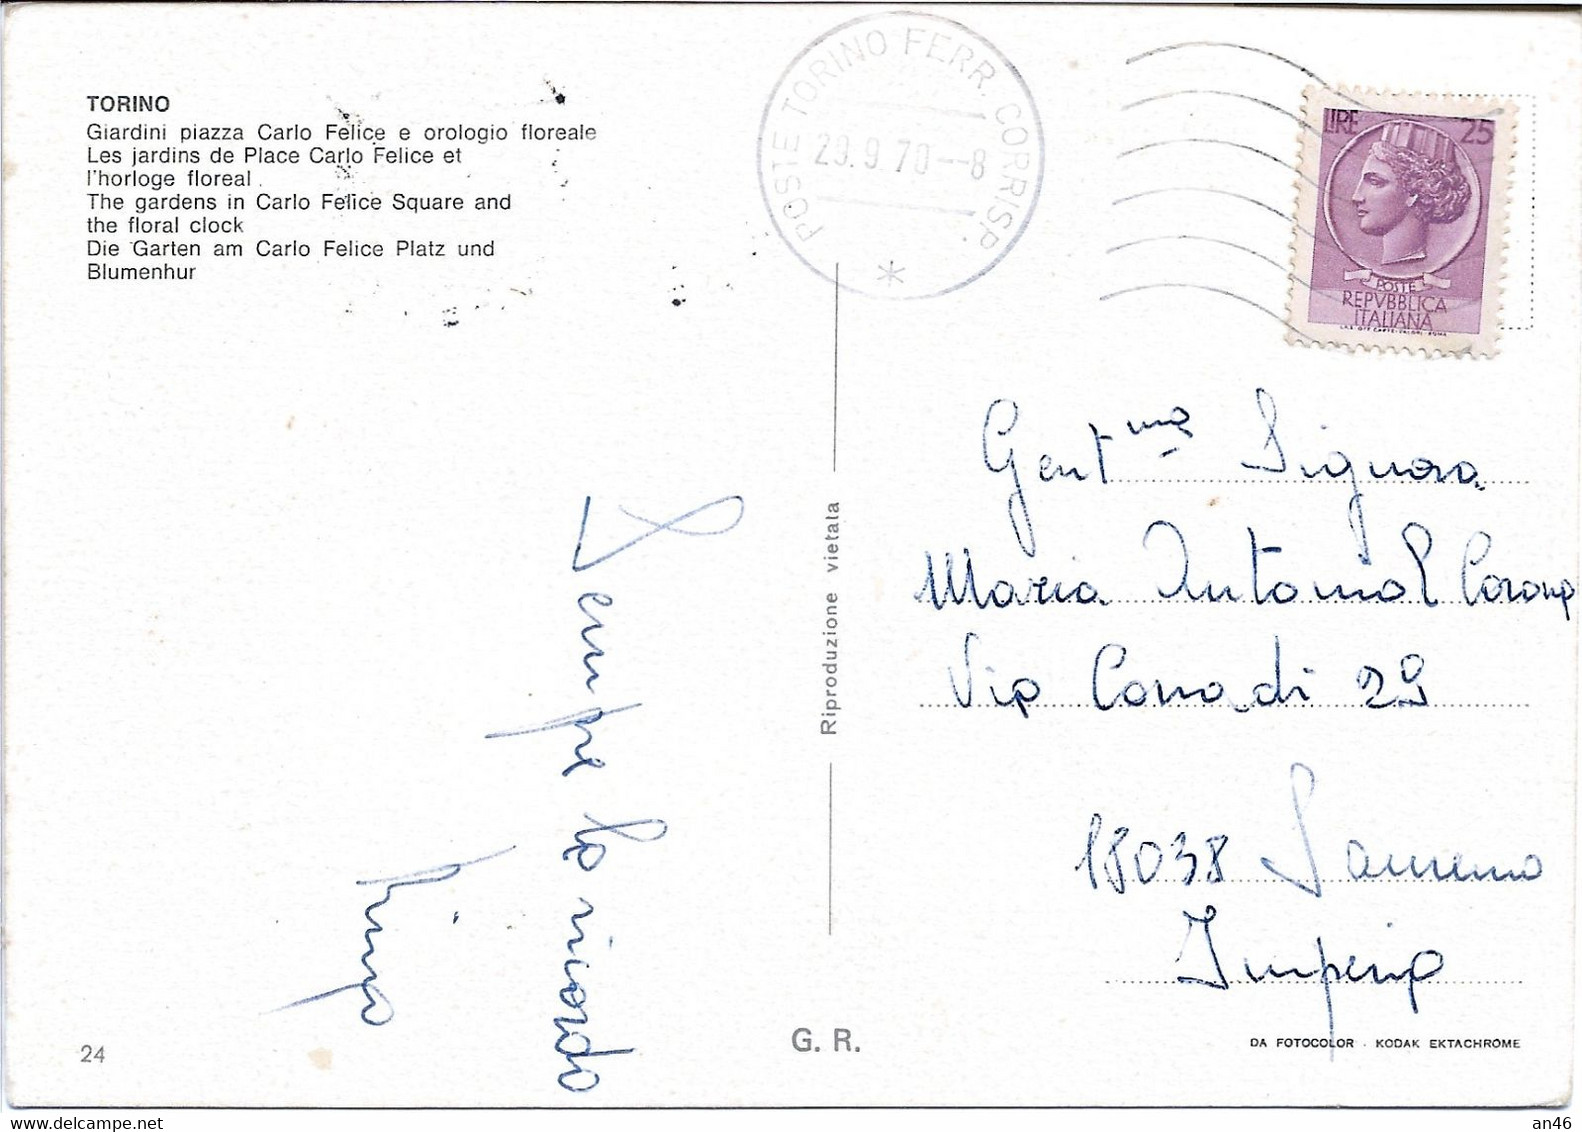 TORINO
Giardini piazza Carlo Felice e orologio floreale
Les jardins de Place Carlo Felice et
l'horloge floreal
The gardens in Carlo Felice Square and
the floral clock
Die Garten am Carlo Felice Platz und
Blumenhur
POSTE TORINO FERR. CORRISP.
29.9.70--8
LIRE 25
POSTE
REPVBBLICA
ITALIANA
Sempre la ricordo
Riproduzione vietata
Gent.ma Signora
Maria
Via Corradi 29
18038 Sanremo
Imperia
24
G. R.
DA FOTOCOLOR - KODAK EKTACHROME
www.delcampe.net
an46